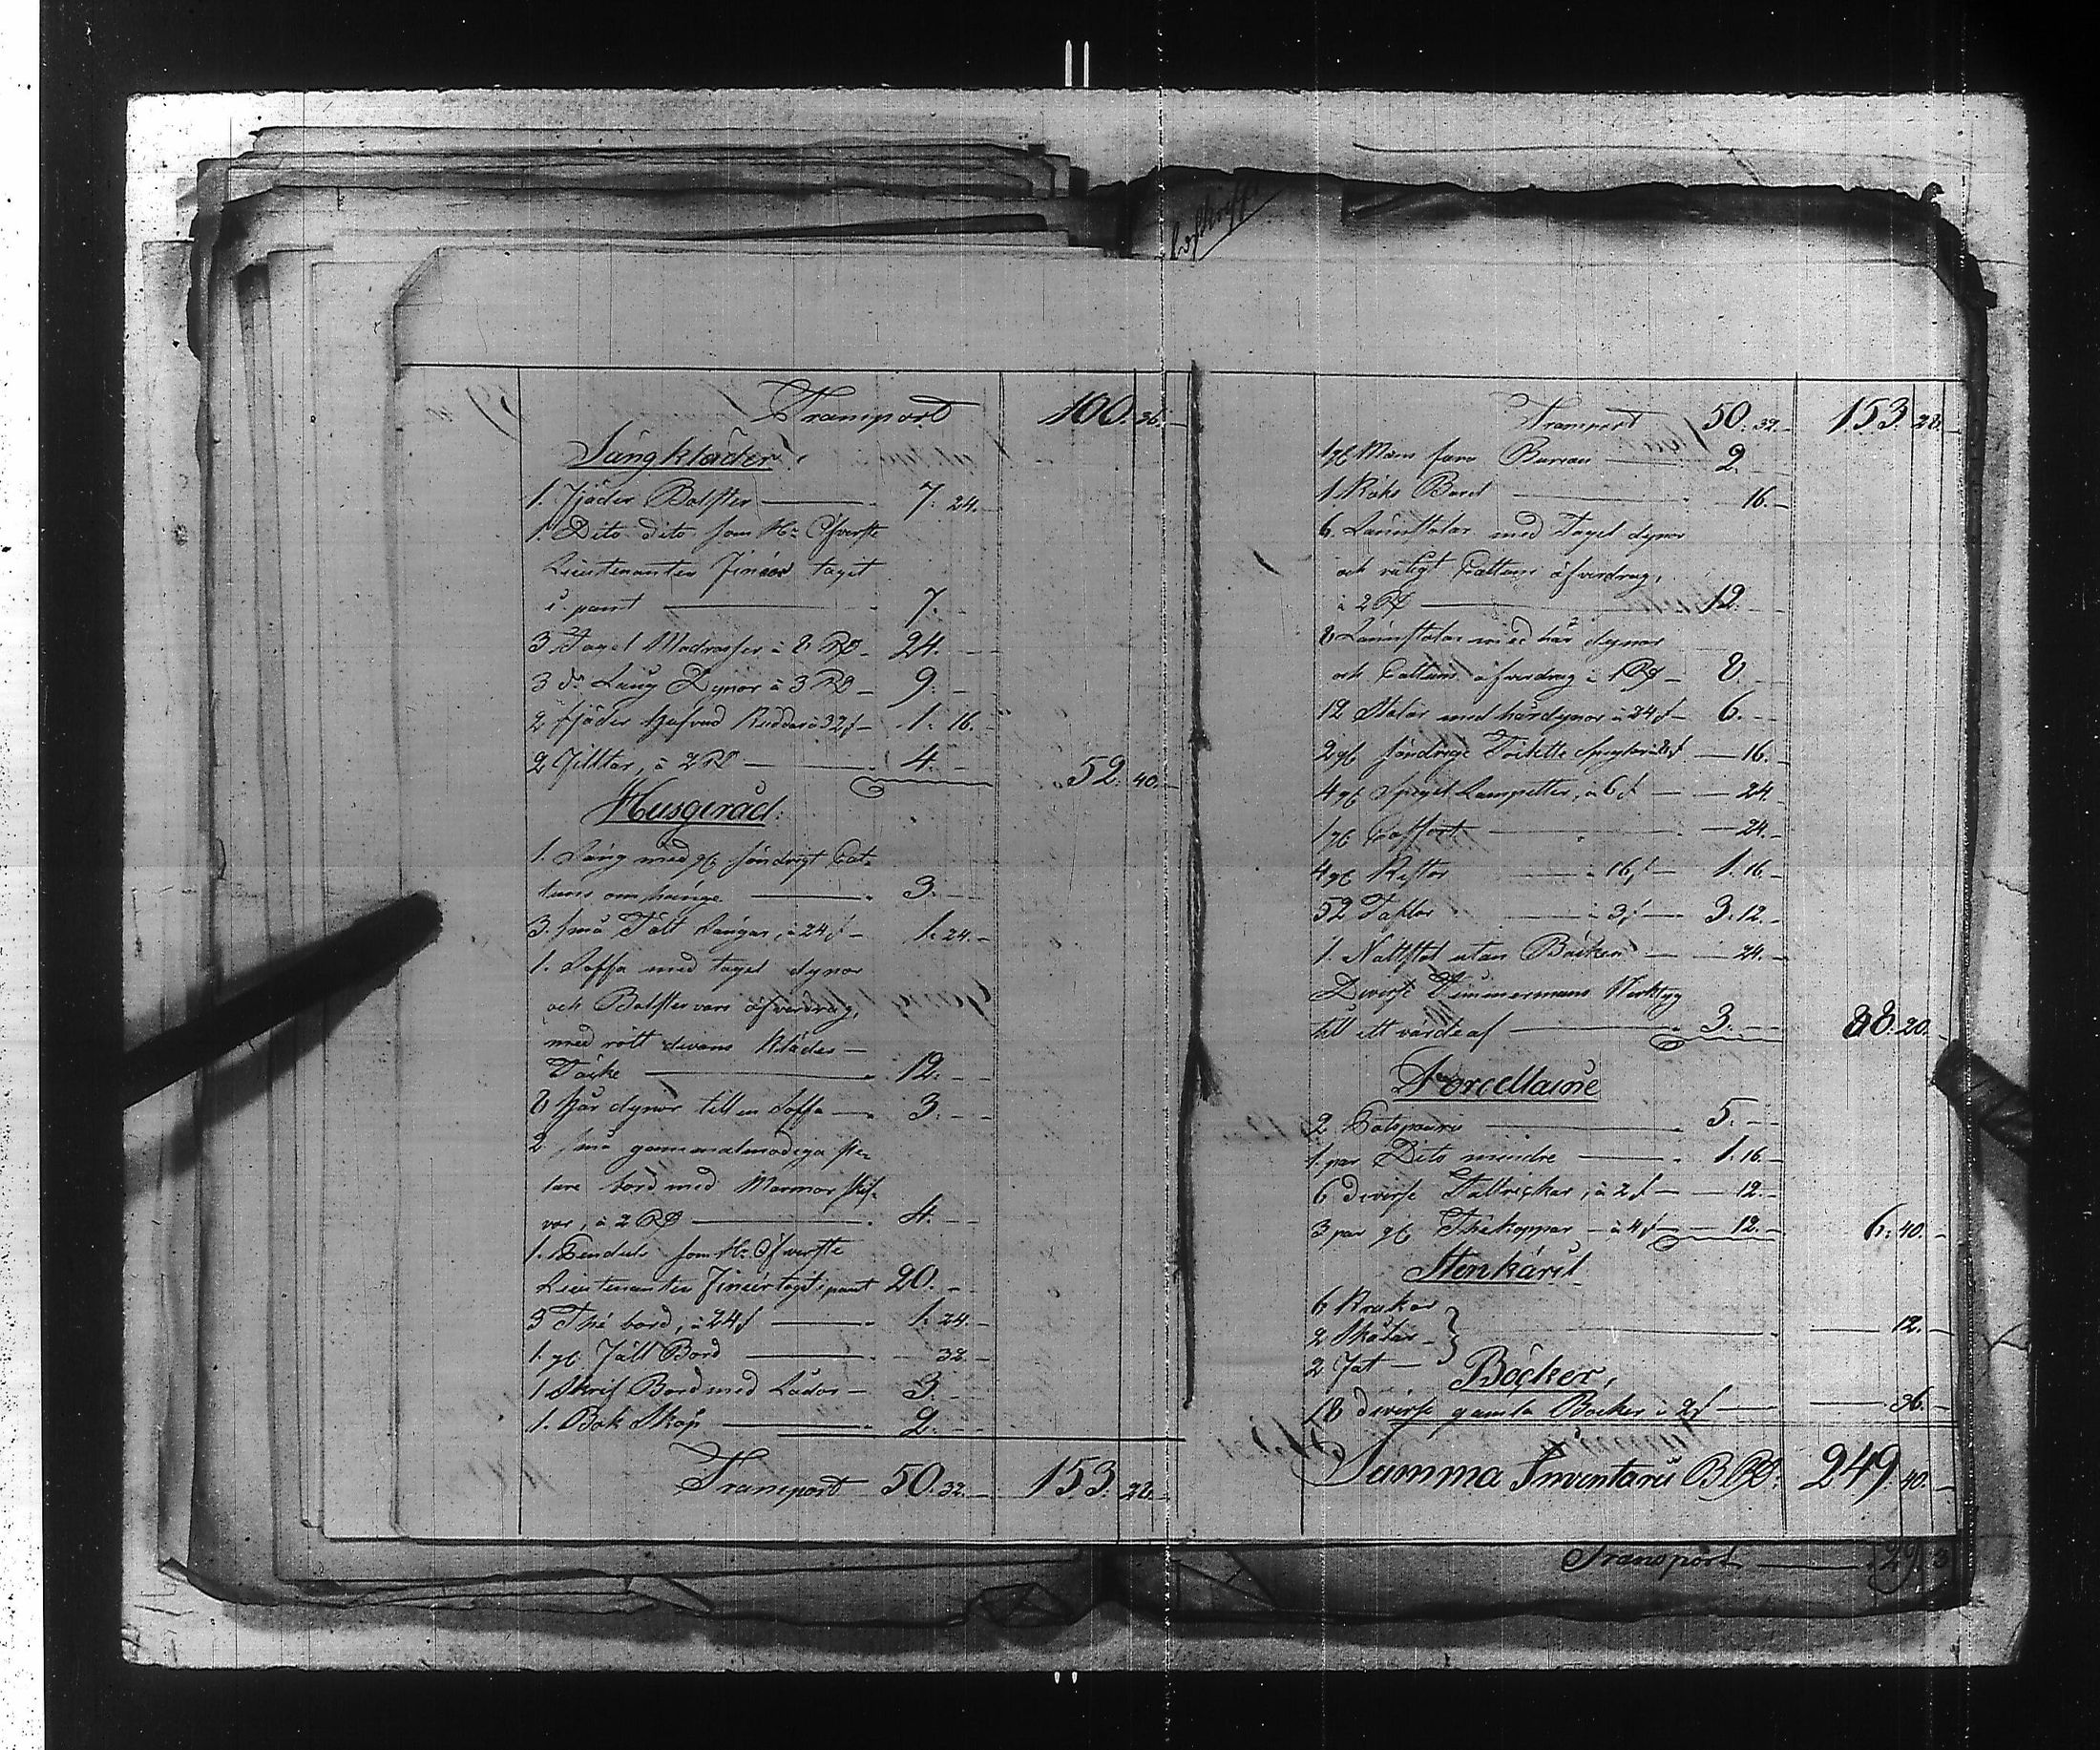 Afskrift
Transport 100. 36.
Sängkläder.
1. Fjäder Bolster 7. 24.
1. Dito dito som Hr Öfverste
Lieutenanten Fineer taget
i pant 7.
3 Tagel Madrasser à 8 RD 24.
3 do Lång Dynor à 3 RD 9.
2 fjäder Hufvud Kuddar à 32 s 1. 16.
2 Filltar, à 2 RD 4. 52. 40.
Husgeråd:
1. Säng med gl. söndrigt Cat-
tuns omhänge 3.
3. små Tält Sängar, à 24 s 1. 24.
1. Soffa med tagel dynor
och Bolstervars öfverdrag,
med rött divans Kläder
Täcke 12.
8 Hår dynor till en Soffa 3.
2 små gammalmodiga Pe-
lare bord med Marmor skif-
vor, à 2 RD 4.
1. Pendule som Hr Öfverste
Lieutenanten Fineer tagit i pant 20.
3 Thé bord, à 24 s 1. 24.
1. gl. Fält Bord 32.
1 Skrif Bord med Lådor 3.
1. Bok Skåp 2.
Transport 50. 32. 153. 28.
Transport 50. 32. 153. 28.
1 gl. Bureau 2.
1 Köks Bord 16.
6. Länstolar med Tagel dynor
och Cattuns öfverdrag,
à 2 RD 12.
8 Länstolar med hår dynor
och Cattuns öfverdrag à 1 RD 8.
12 Stolar med hårdynor à 24 s 6.
2 gl. söndrige Toilette Speglar à 8 s 16.
4 gl. Spegel Lampetter, à 6 s 24.
1 gl. Coffort 24.
4 gl. Kistor à 16 s 1. 16.
52 Taflor à 3 s 3. 12.
1. Nattstol utan Bäcken 24.
Diverse Timmermans Verktyg
till ett värde af 3. 38. 20.
Porcellaine
2. 5.
1. par Dito mindre 1. 16.
6 diverse Tallrickar, à 2 s 12.
3 par gl. Thekoppar à 4 s 12. 6. 40.
Stenkäril
6 Krukor
2 Skålar 12.
2 Fat
Böcker,
18 diverse gamla Böcker à 2 s 36.
Summa Inventarii B RD: 249. 40.
Transport